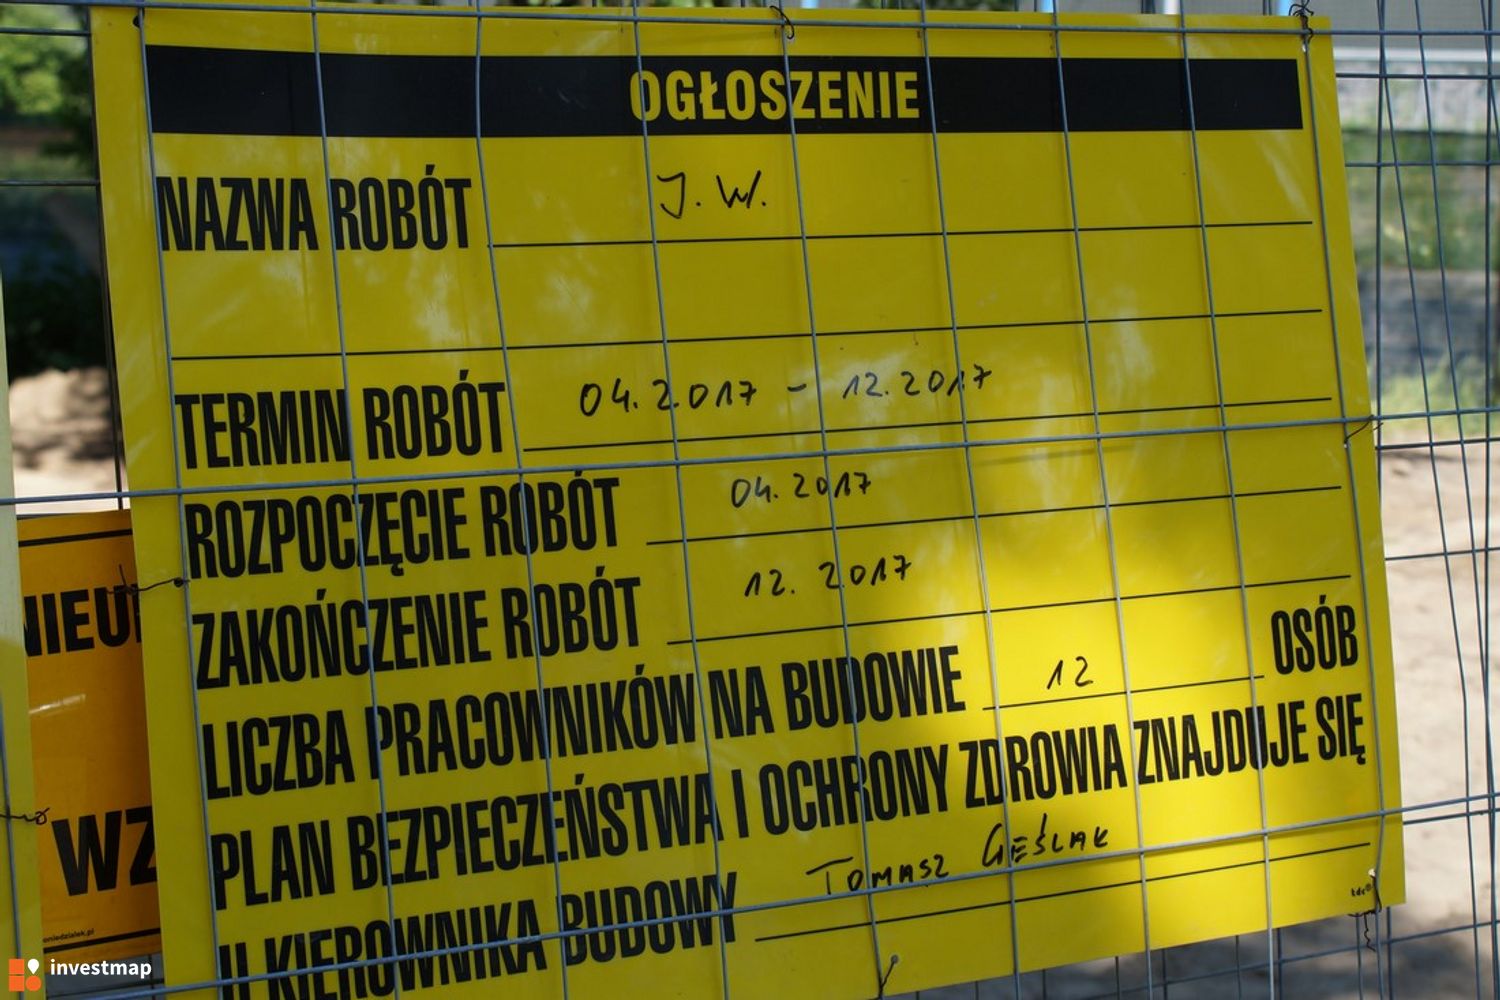 OGŁOSZENIE
NAZWA ROBÓT J. W.
TERMIN ROBÓT 04.2017 - 12.2017
ROZPOCZĘCIE ROBÓT 04.2017
ZAKOŃCZENIE ROBÓT 12.2017
LICZBA PRACOWNIKÓW NA BUDOWIE 12 OSÓB
PLAN BEZPIECZEŃSTWA I OCHRONY ZDROWIA ZNAJDUJE SIĘ
U KIEROWNIKA BUDOWY TOMASZ GĘŚLAK
tdc
NIEU
WZ
oniedzialek.pl
investmap